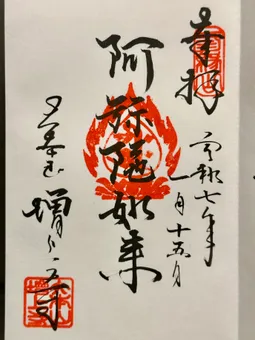 奉拝
令和七年
一月十五日
阿弥陀如来
増上寺